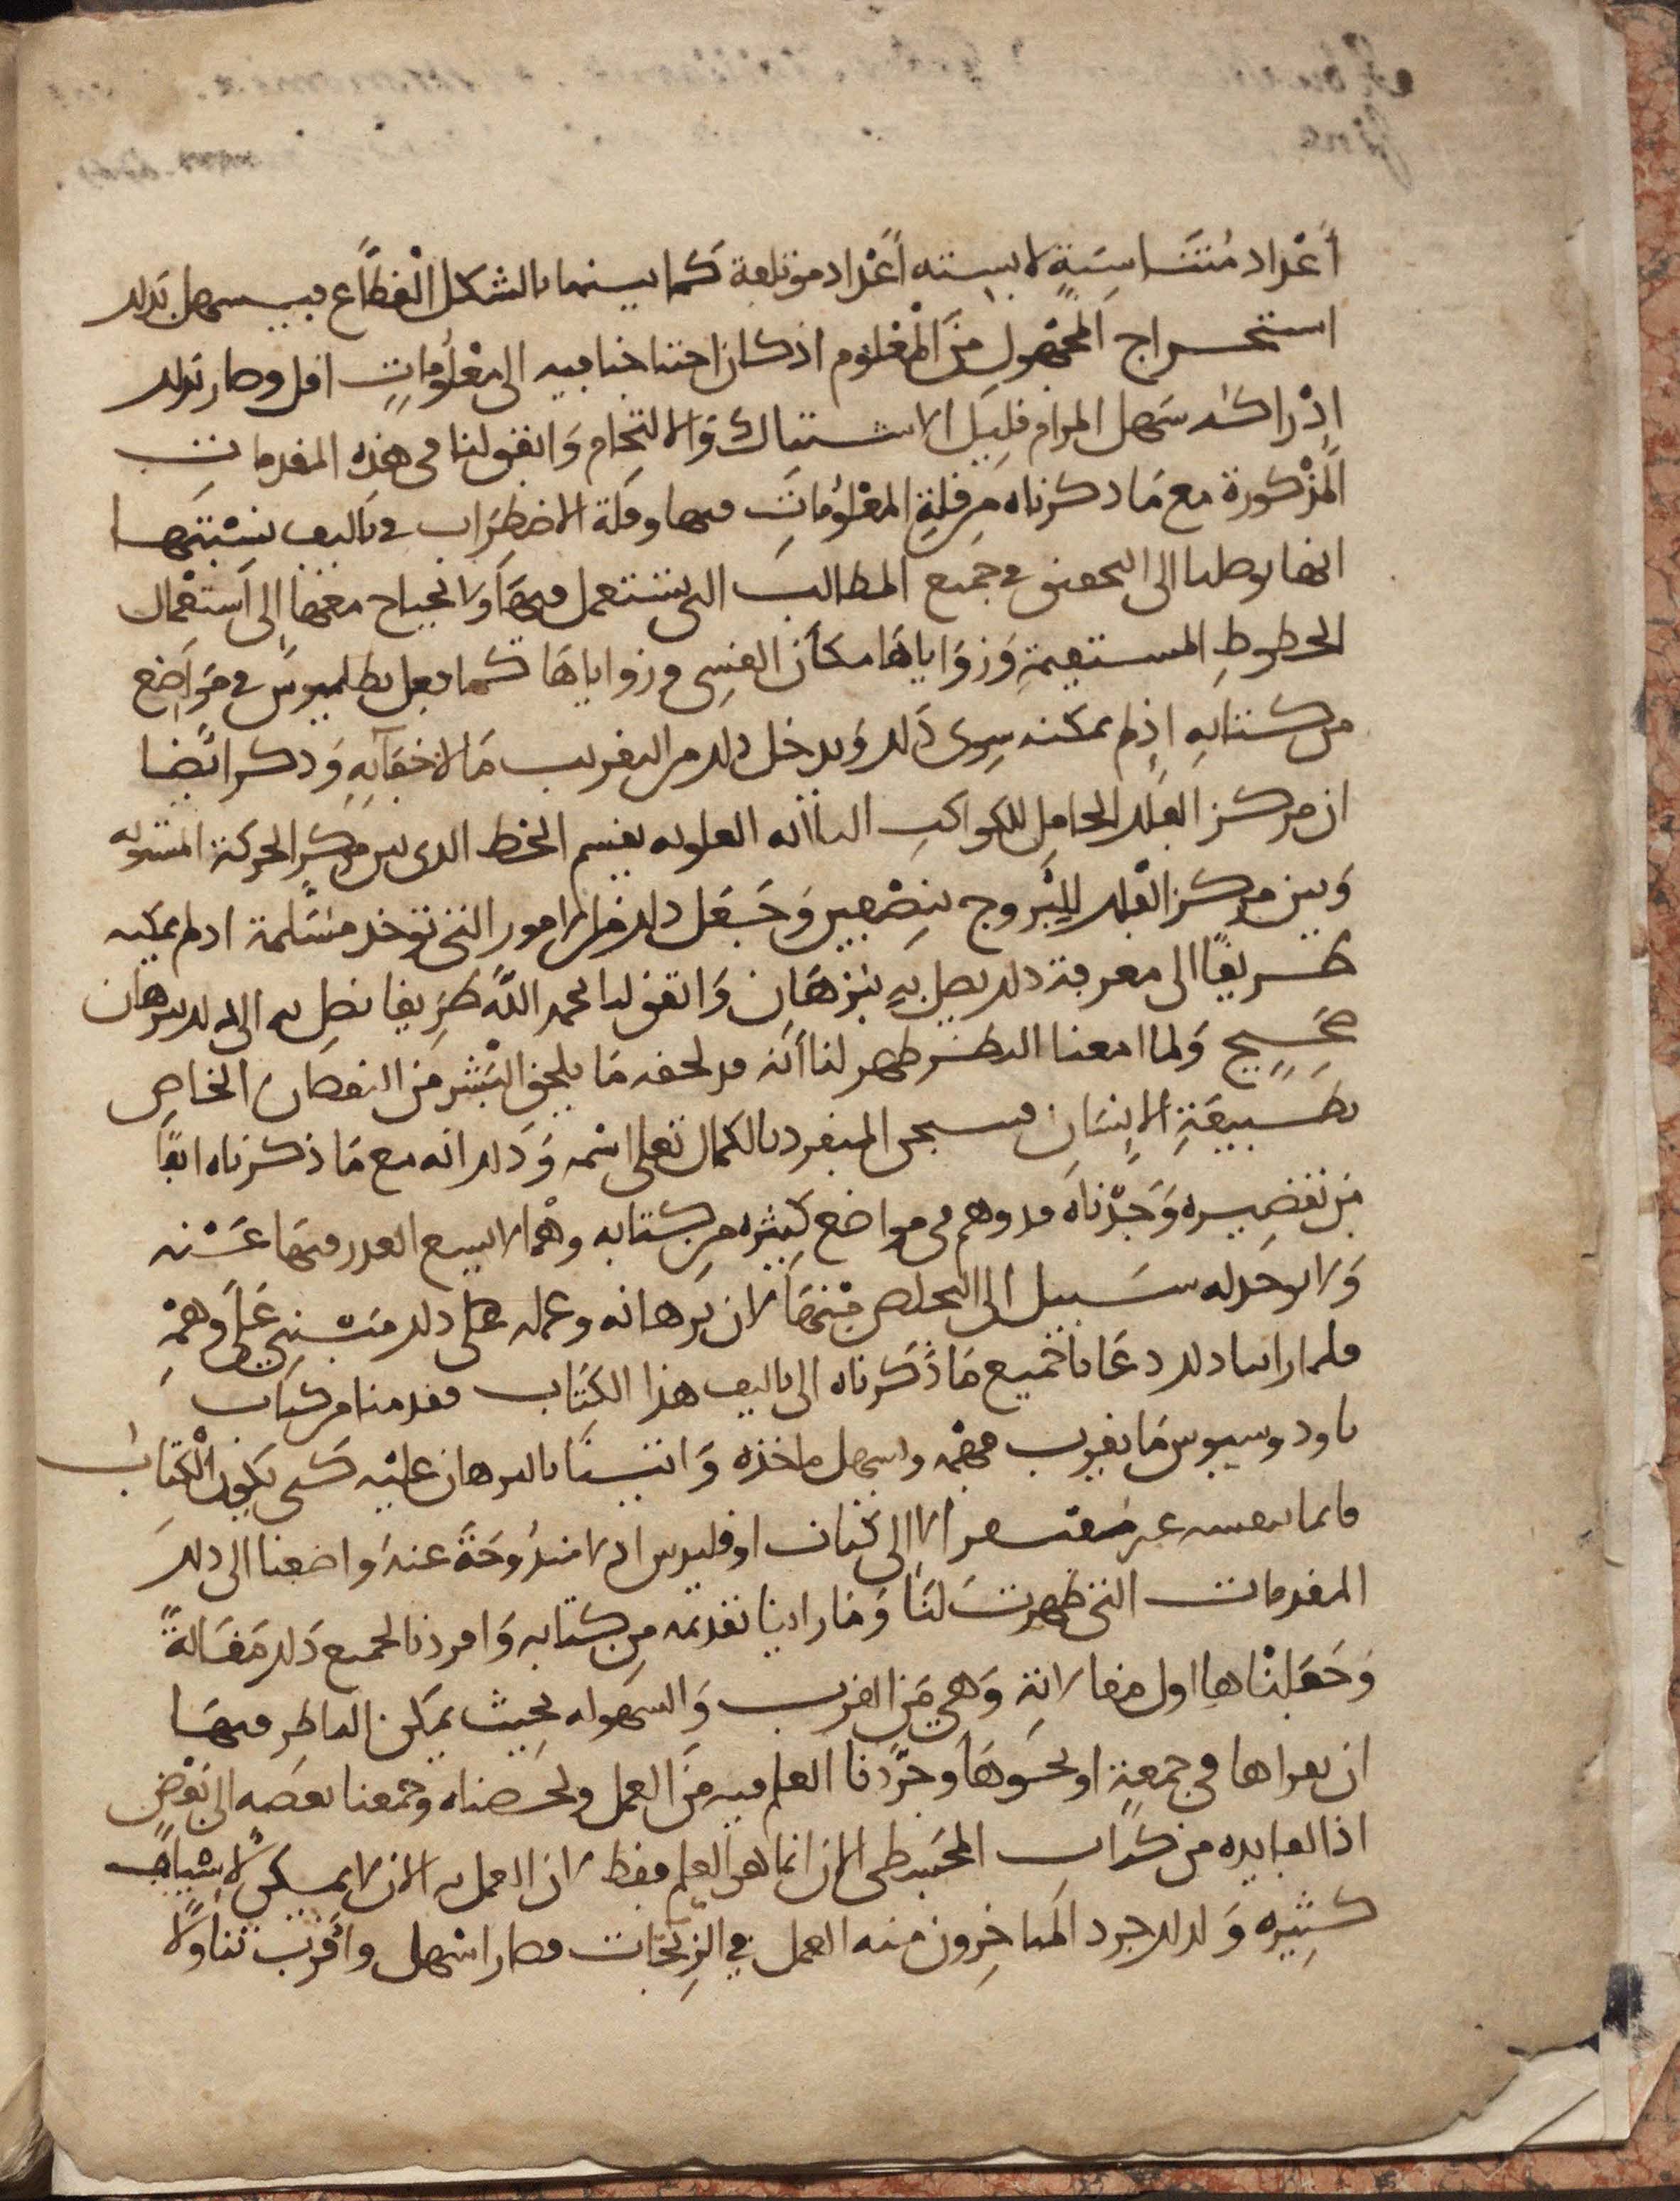 أعداد متناسبة لا بسته أعداد مؤتلفة كما بينها بالشكل القطاع فيسهل بذلك
استخراج المجهول من المعلوم اذ كان احتياجنا فيه الى معلومات اقل وصار بذلك
إدراكه سهل المرام قليل الاشتباك والالتحام واتفق لنا في هذه المقدمات
المذكورة مع ما ذكرناه من قلة المعلومات فيها وقلة الاضطراب في تأليف نسبتها
انها توصلنا الى التحقيق في جميع المطالب التي تستعمل فيها ولا نحتاج معها إلى استعمال
الخطوط المستقيمة وزواياها مكان القسي وزواياها كما فعل بطلميوس في مواضع
من كتابه اذ لم يمكنه سوى ذلك ويدخل ذلك من التقريب ما لا خفاء به وذكر ايضا
ان مركز الفلك الحامل للكواكب الثلاثة العلوية يقسم الخط الذي بين مركز الحركة المستوية
وبين مركز الفلك للبروج بنصفين وجعل ذلك من الامور التي توخذ مسلمة اذ لم يمكنه
طريقا الى معرفة ذلك يصل به ببرهان واتفق لنا بحمد الله طريقا نصل به الى ذلك ببرهان
صحيح ولما امعنا النظر ظهر لنا أنه قد لحقه ما يلحق البشر من النقصان الخاص
بطبيعة الإنسان فسبحن المنفرد بالكمال تعلى اسمه وذلك انه مع ما ذكرناه انفا
من تقصيره وجدناه قد وهم في مواضع كثيرة من كتابه وهما لا يسع العذر فيها عنه
ولا يوجد له سبيل الى التخلص منها لان برهانه وعمله على ذلك مبني على وهمه
فلما راينا ذلك دعانا جميع ما ذكرناه الى تاليف هذا الكتاب فقدمنا من كتاب
ثاودوسيوس ما يقرب فهمه ويسهل ماخذه واتينا بالبرهان عليه كي يكون الكتاب
قائما بنفسه غير مفتقر الا الى كتاب اوقليدس اذ لا مندوحة عنه واضفنا الى ذلك
المقدمات التي ظهرت لنا وما راينا تقديمه من كتابه وافردنا لجميع ذلك مقالة
وجعلناها اول مقالاته وهي من القرب والسهولة بحيث يمكن الناظر فيها
ان يقراها في جمعة او نحوها وجردنا العلم فيه من العمل ولخصناه وجمعنا بعضه الى بعض
اذ الفايدة من كتاب المجسطي الان انما هي العلم فقط لان العمل به الان لا يمكن لاشياء
كثيرة ولذلك جرد المتاخرون منه العمل في الزيجات فصار اسهل واقرب تناولا